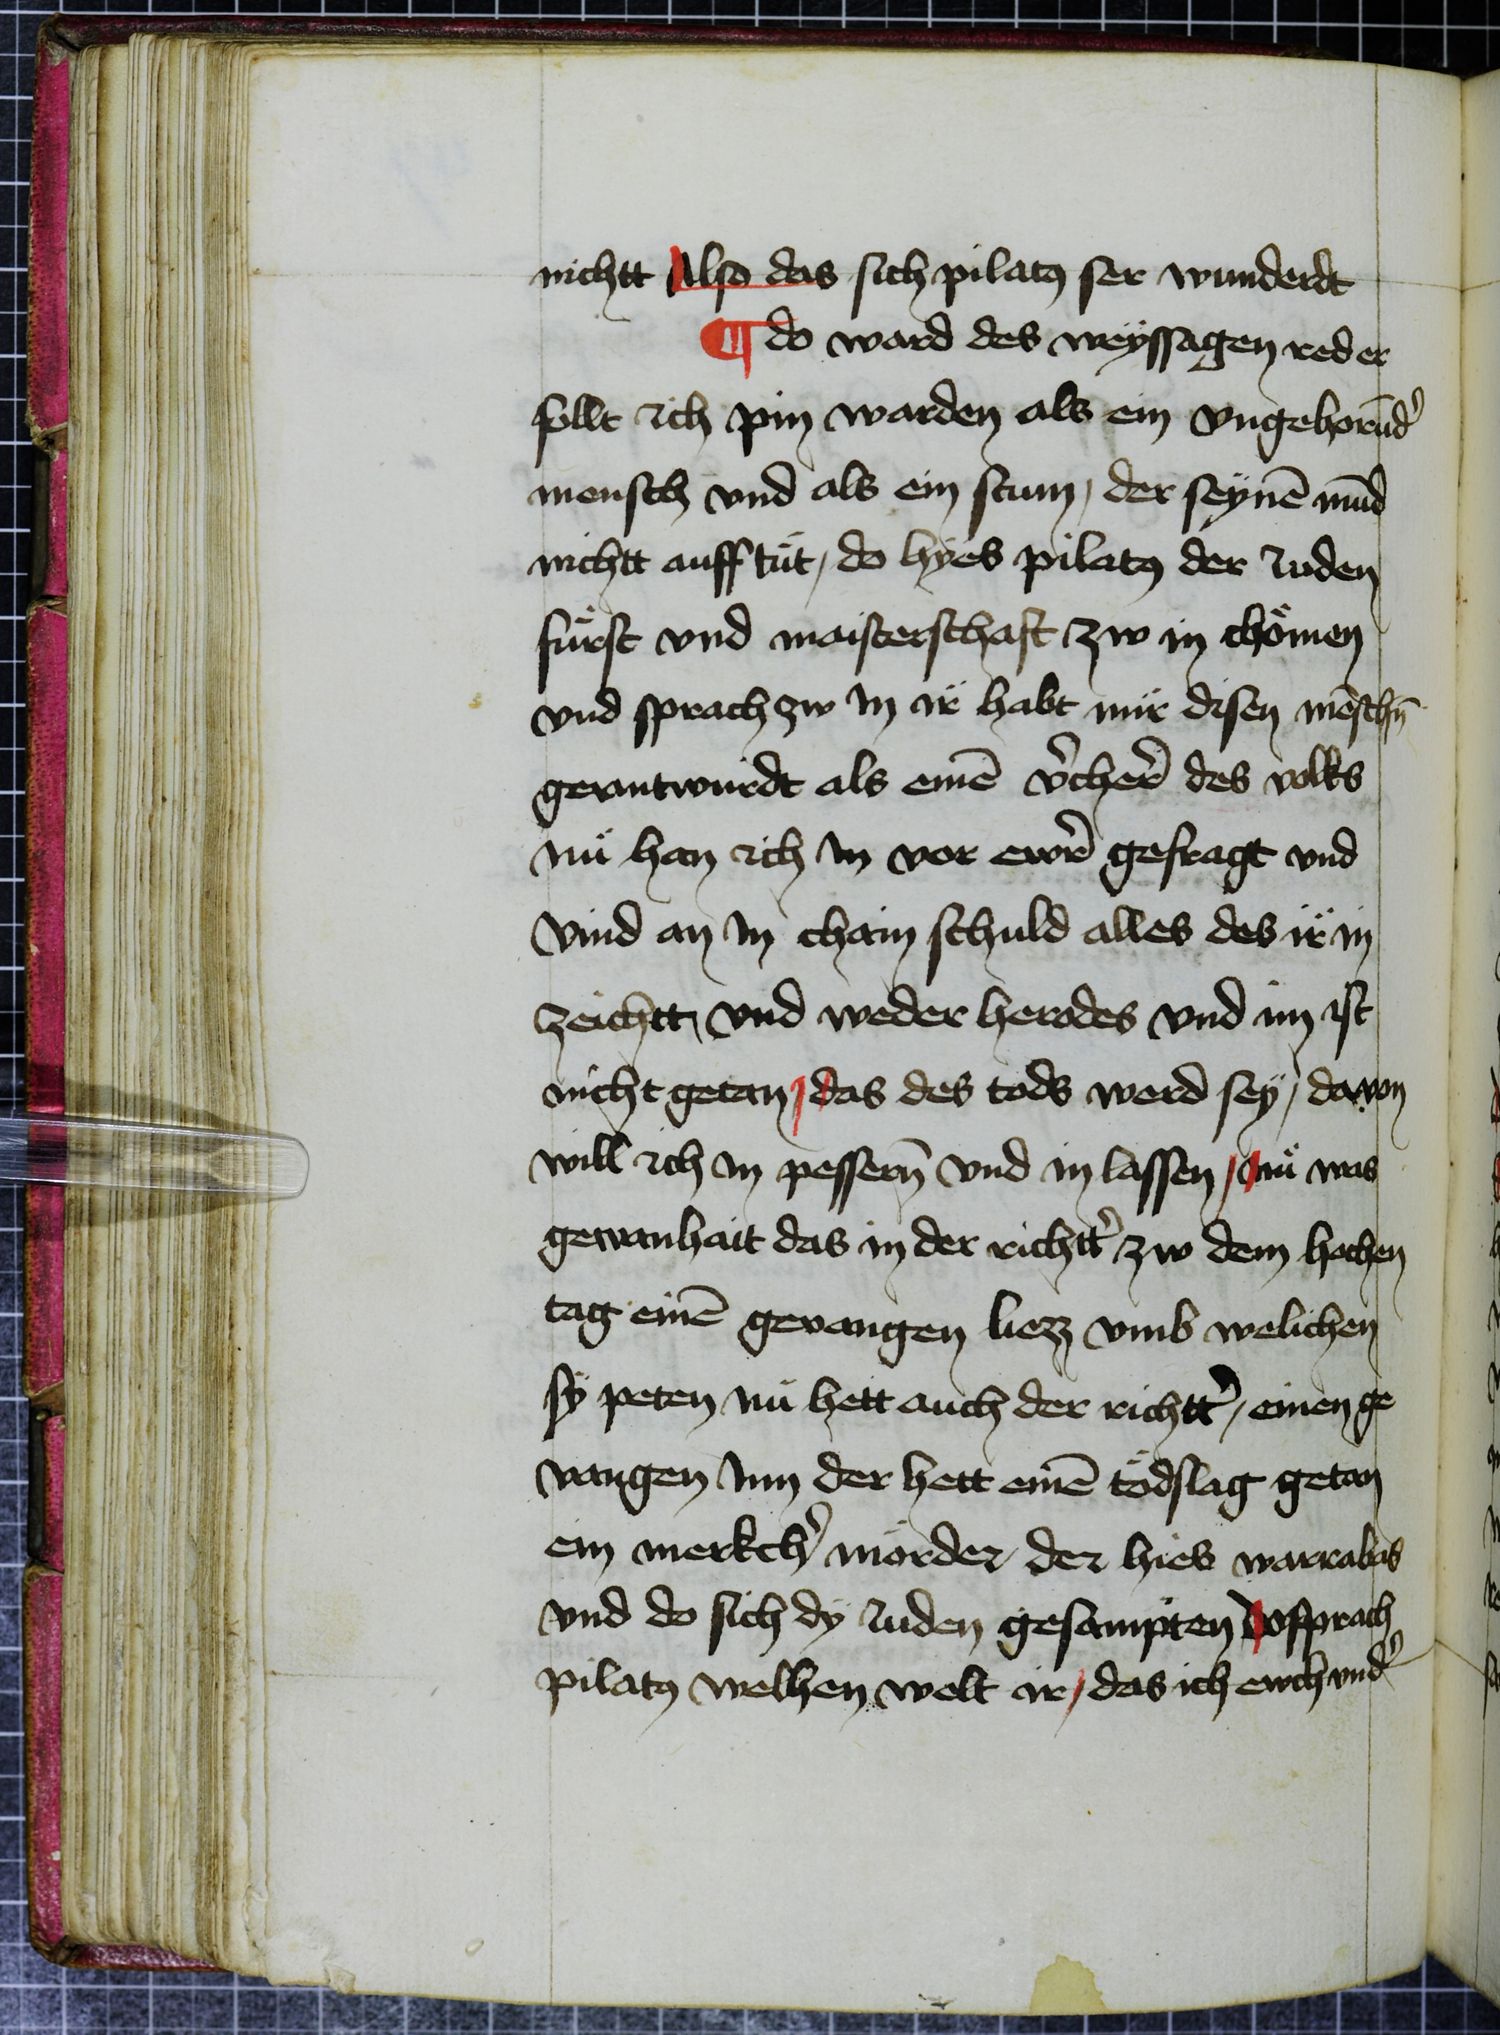 nichtt Also das sich pilatꝰ ser wunderdt
¶ do ward des weÿssagen red er
füllt ich pin warden als ein vngehorūd̾
mensch vnd als ein stum / der seÿnē mūd
nichtt auff tüt / do hÿes pilatꝰ der Juden
fürst vnd maisterschaft zw in chömen
vnd sprach zw in ir habt mir disen mēschn̄
geantwürdt als einē v̾cher̾ des volks
nü han ich in vor ewr̾ gefragt vnd
vind an in chain schuld alles des ir in
zeichtt / vnd weder herodes vnd im ist
nicht getan / das des tods werd seÿ / davon
will ich in pessern̄ vnd in lassen / nü was
gewanhait das in der richtt̾ zw dem hochen
tag einē gevangen liezz vmb welichen
sÿ peten nü hett auch der richtt̾ / einen ge
vangen Inn der hett einē tödslag getan
ein merkch̾ mörder der hies warrabas
vnd do sich dÿ Juden gesampten do sprach
pilatꝰ welhen welt ir / das ich ewch vnd̾